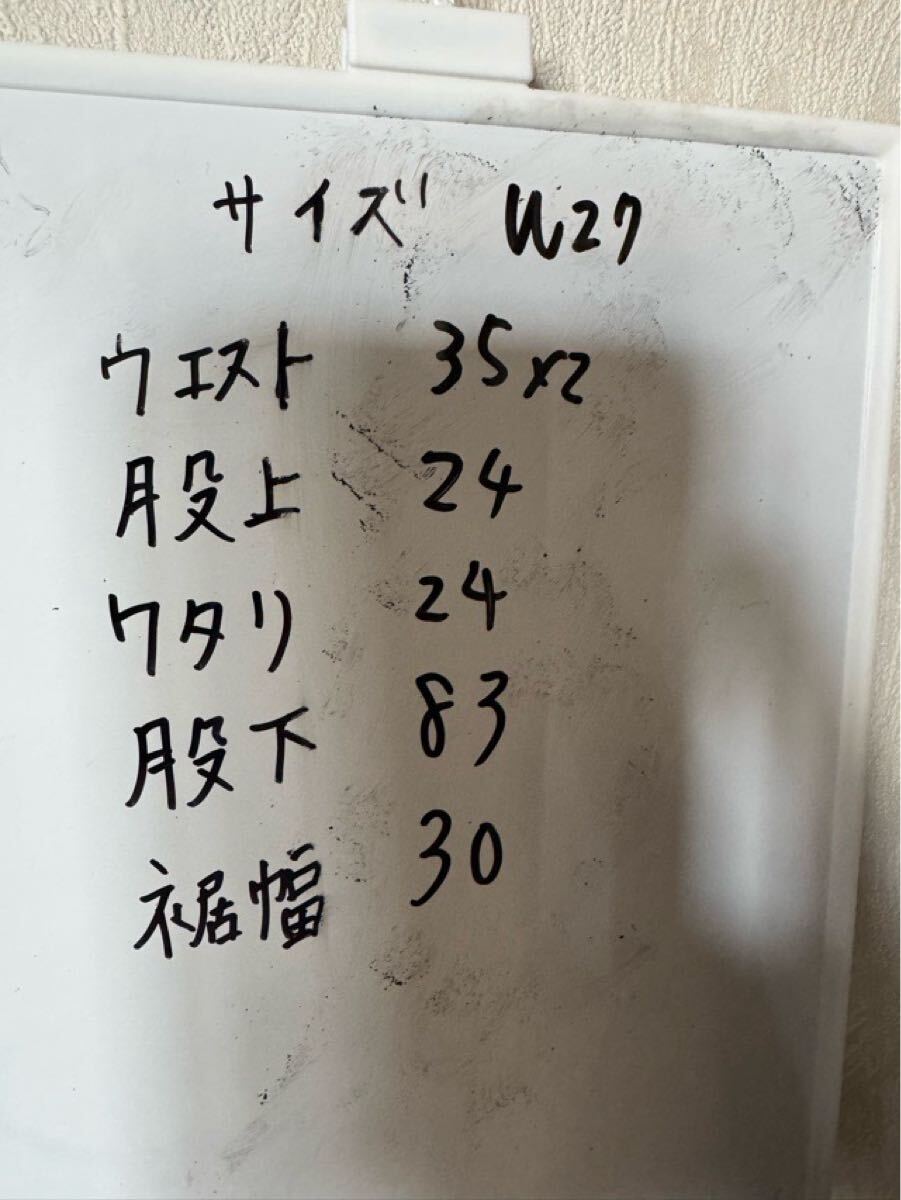 サイズ W27
ウエスト 35x2
股上 24
ワタリ 24
股下 83
裾幅 30